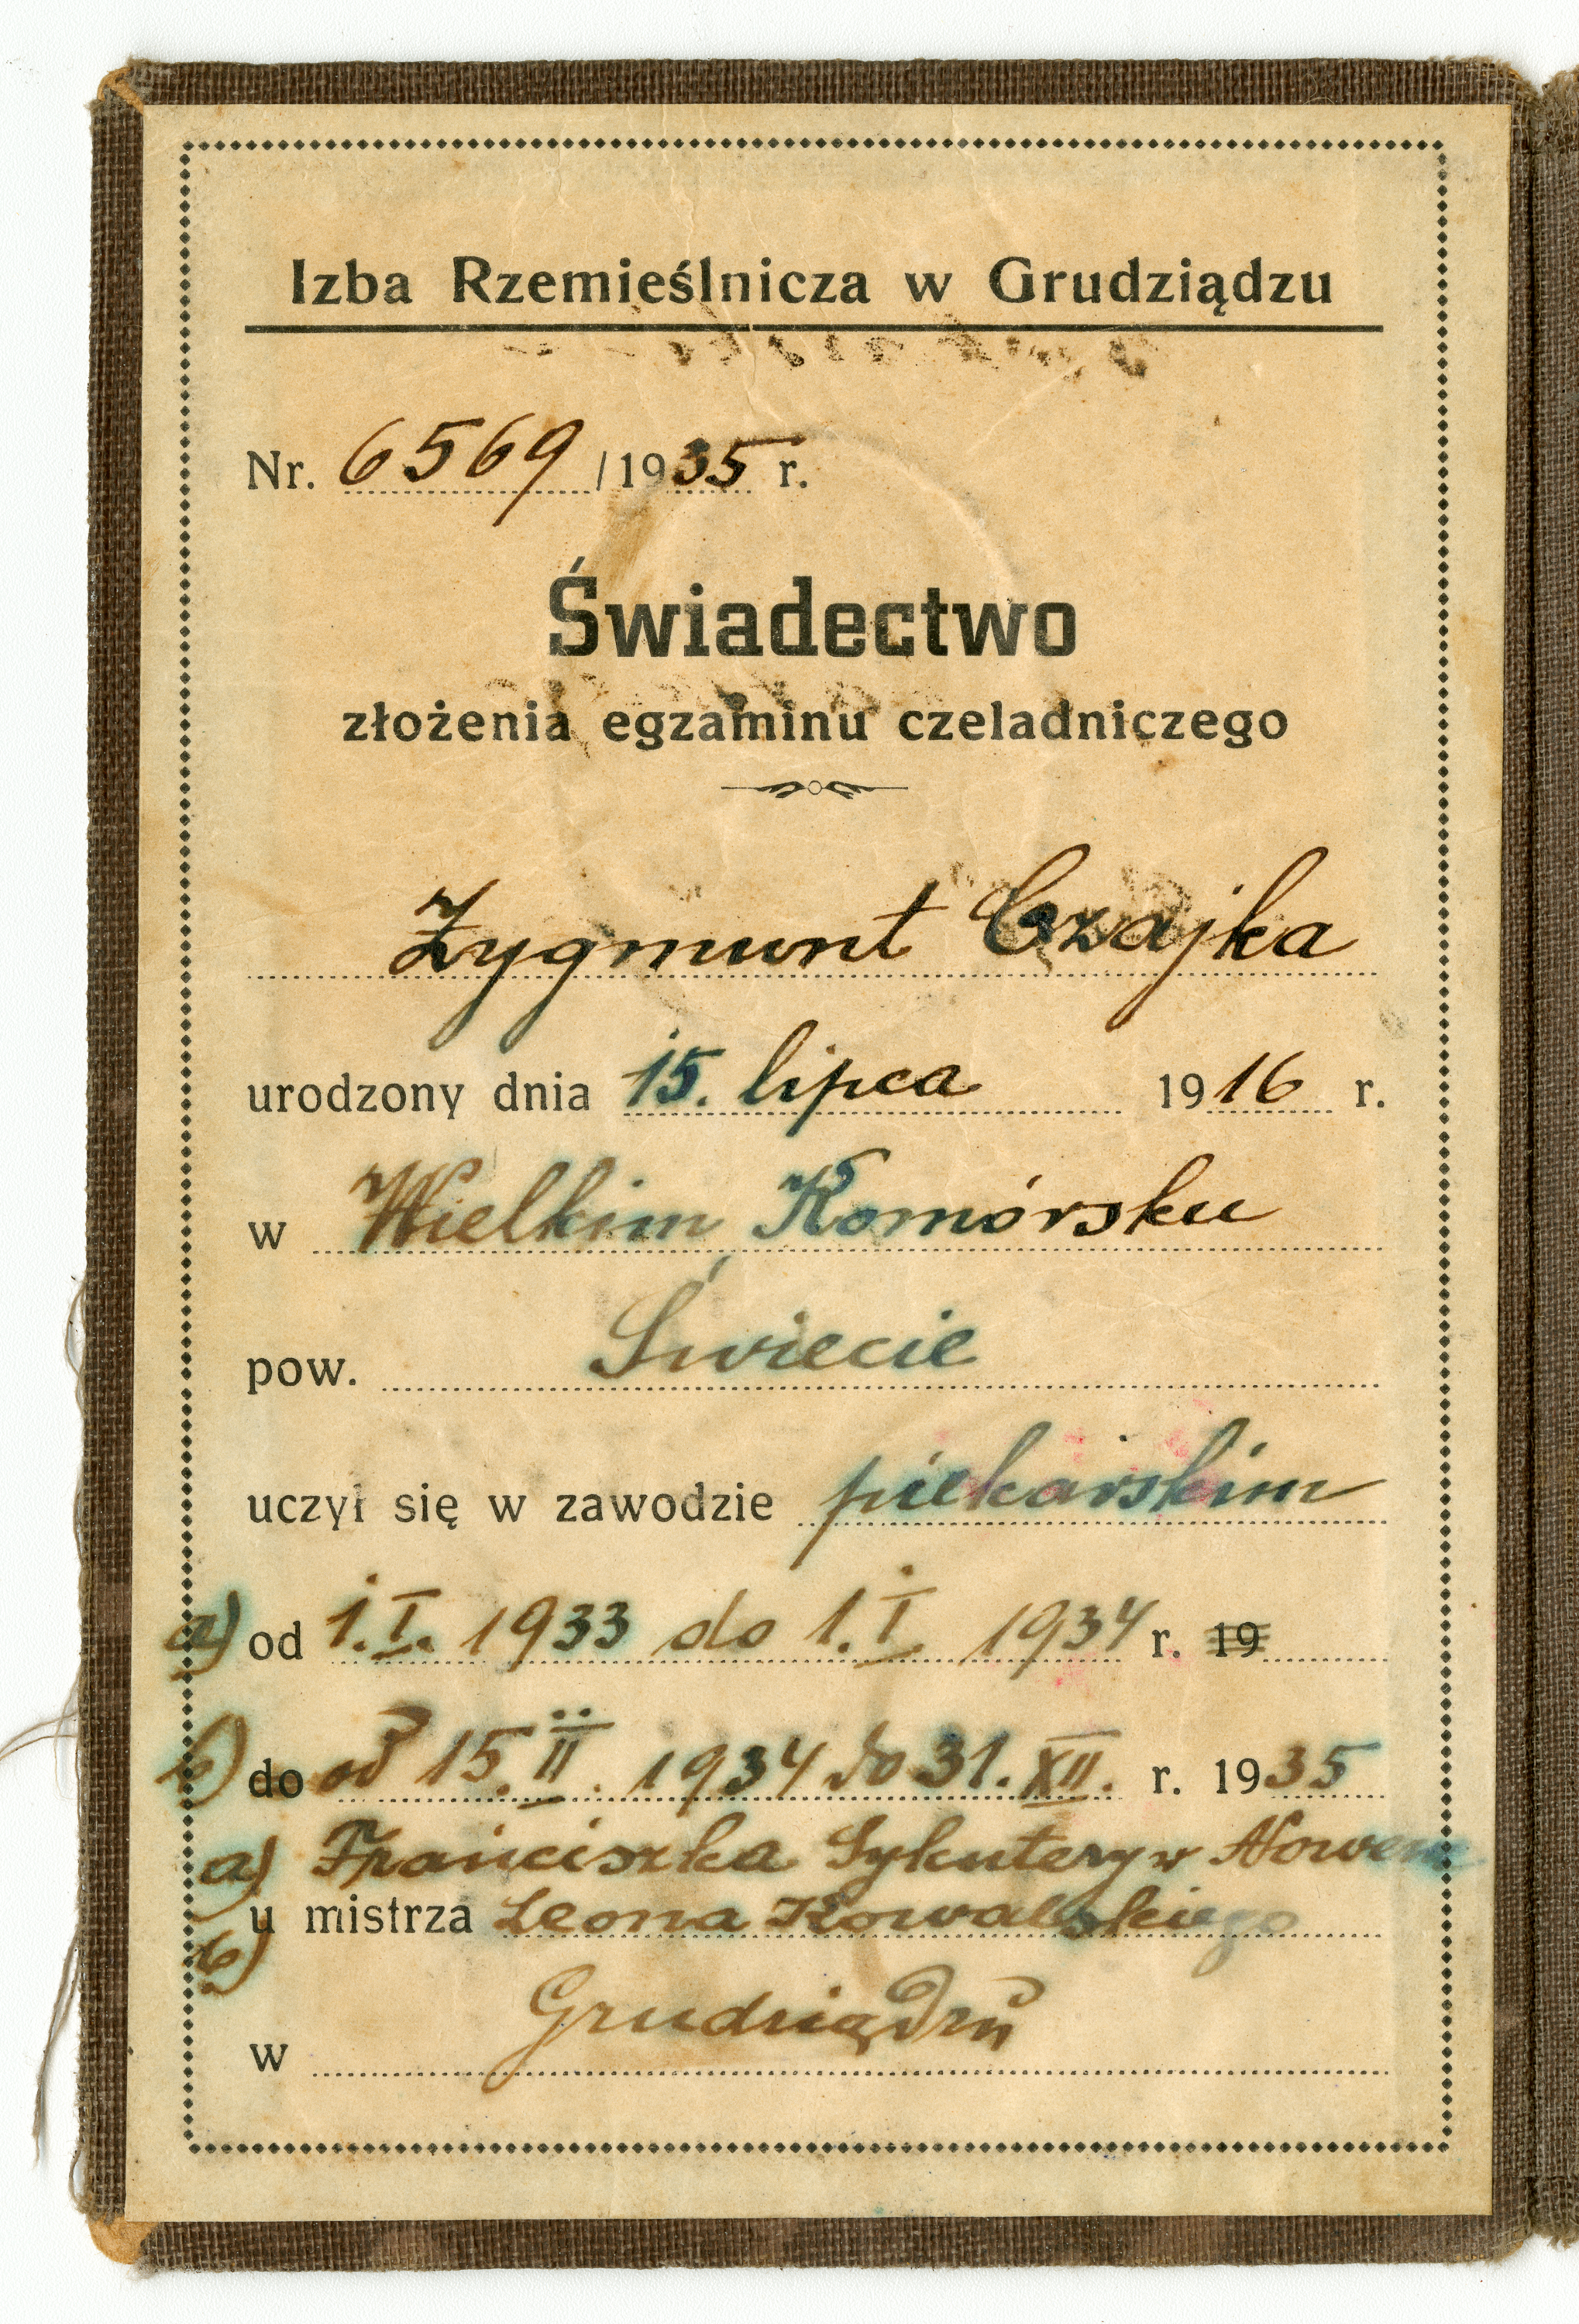 Izba Rzemieślnicza w Grudziądzu
Nr. 6569 / 1935 r.
Świadectwo
złożenia egzaminu czeladniczego
Zygmunt Czajka
urodzony dnia 15. lipca 1916 r.
w Wielkim Komórsku
pow. Świecie
uczył się w zawodzie piekarskim
a) od 1.I. 1933 do 1.I 1934 r. 19
b) do od 15.II. 1934 do 31.XII. r. 1935
a) Franciszka Sykutery w Nowem
u mistrza Leona Kowalskiego
b)
w Grudziądzu